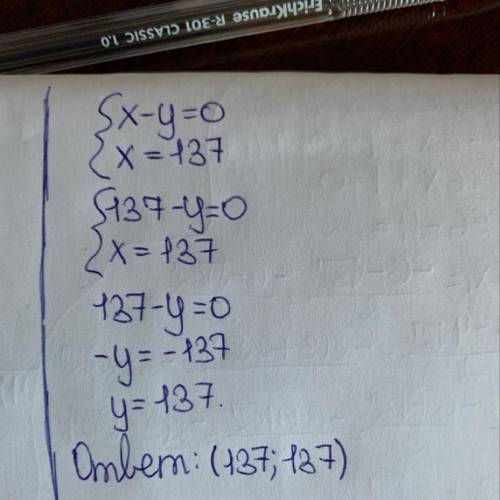 ErichKrause R-301 CLASSIC 1.0
{x-y=0
{x=137
{137-y=0
{x=137
137-y=0
-y=-137
y=137.
Ответ: (137; 137)